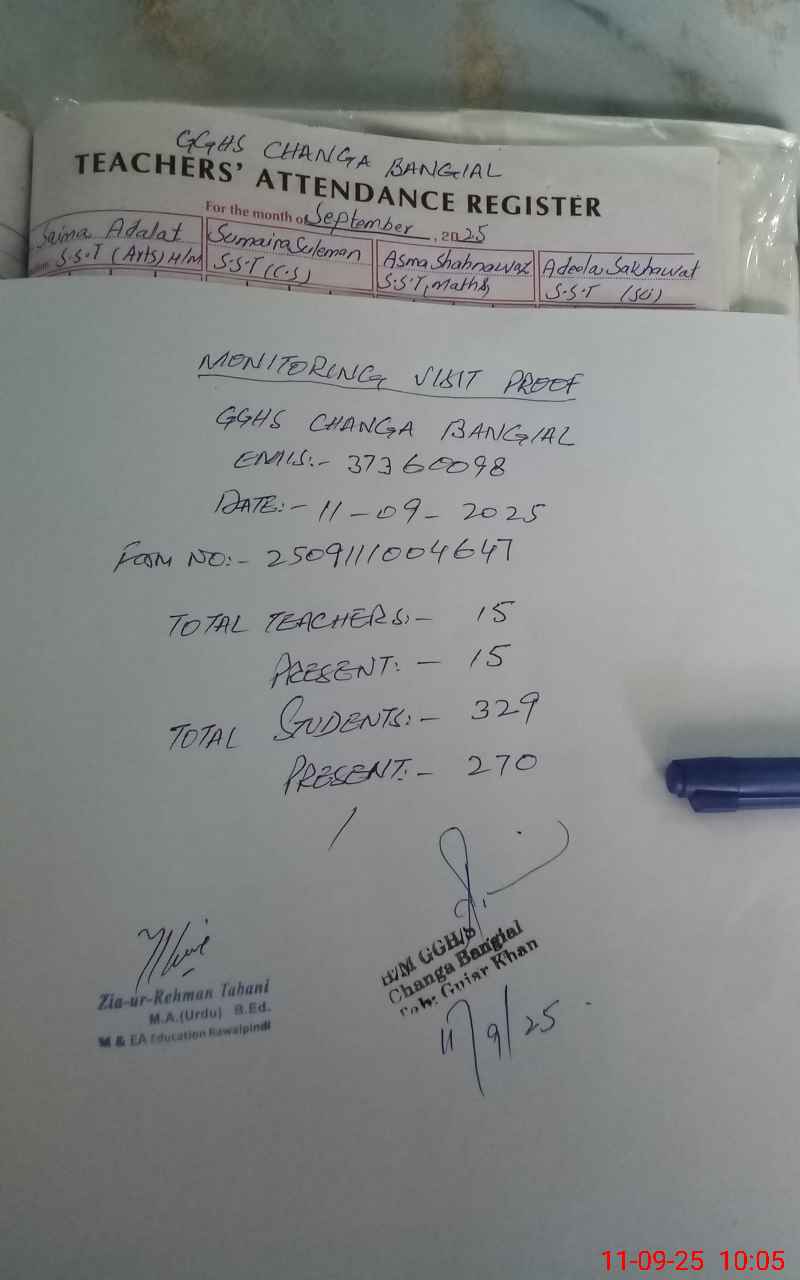 GGHS CHANGA BANGIAL
TEACHERS' ATTENDANCE REGISTER
For the month of September, 2025
Saima Adalat
S.S.T (Arts) H/M
Sumaira Suleman
S.S.T (C.S)
Asma Shahnawaz
S.S.T, Maths
Adeela Sakhawat
S.S.T (Sci)
MONITORING VISIT PROOF
GGHS CHANGA BANGIAL
EMIS:- 37360098
DATE:- 11-09-2025
FORM NO:- 2509111004647
TOTAL TEACHERS:- 15
PRESENT:- 15
TOTAL STUDENTS:- 329
PRESENT:- 270
Zia-ur-Rehman Tahani
M.A.(Urdu) B.Ed.
M & EA Education Rawalpindi
H/M GGH/S
Changa Bangial
Teh: Gujar Khan
11/9/25
11-09-25 10:05